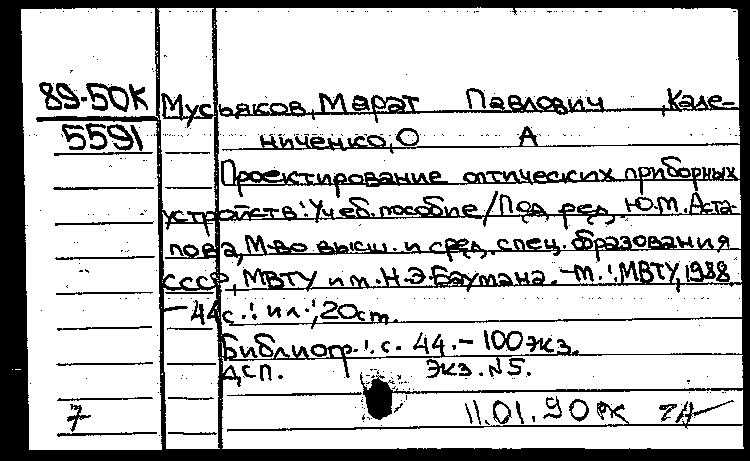 89-50К Мусьяков, Марат Павлович, Кале-
5591 ниченко, О А
Проектирование оптических приборных
устройств: Учеб. пособие / Под ред. Ю.М. Аста-
пова, М-во высш. и сред. спец. образования
СССР, МВТУ им. Н.Э. Баумана. -М.: МВТУ, 1988.
- 44 с.: ил.; 20 ст.
Библиогр.: с. 44. - 100 экз.
ДСП. Экз. N5.
7 11.01.90